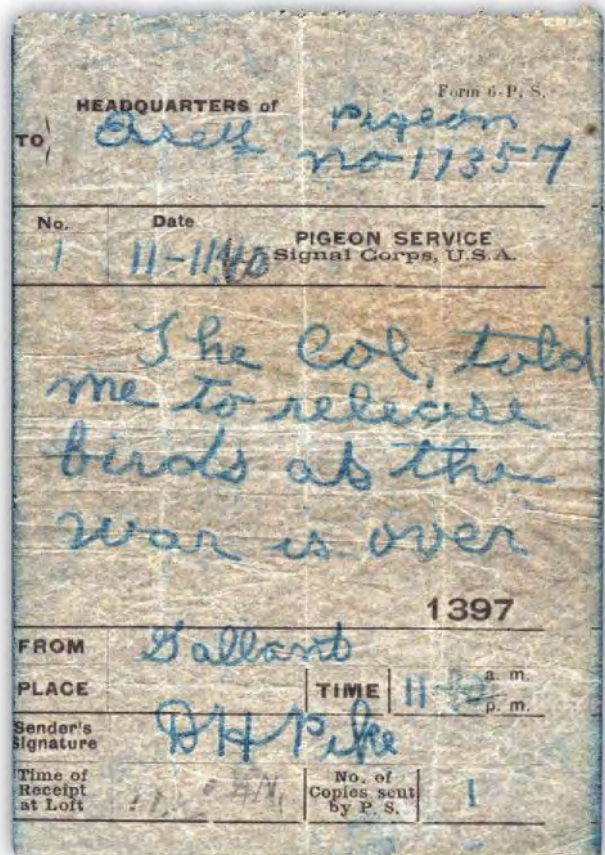 Form 6-P. S.
HEADQUARTERS of
TO Pigeon
no 17357
No. Date PIGEON SERVICE
1 11-11 Signal Corps, U.S.A.
The Col, told
me to release
birds as the
war is over
1397
FROM Gallant
PLACE TIME 11 a. m.
p. m.
Sender's
Signature DH Pike
Time of
Receipt
at Loft
No. of
Copies sent
by P. S. 1